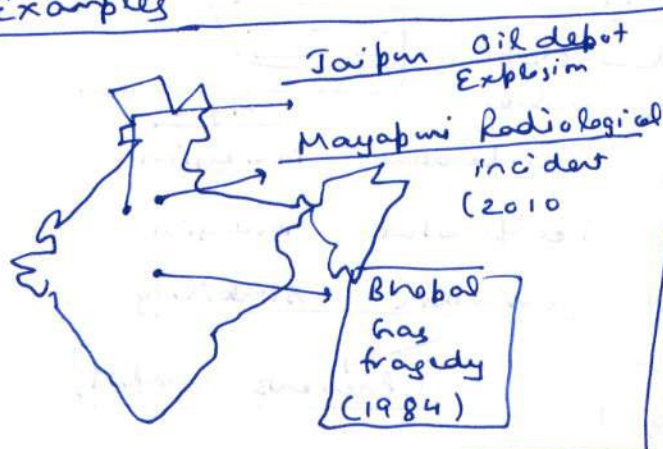 Examples
Jaipur Oil depot
Explosion
Mayapuri Radiological
incident
(2010
Bhopal
Gas
tragedy
(1984)